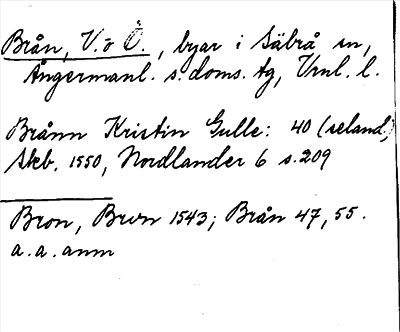 Brån, V. o Ö., byar i Säbrå sn,
Ångermanl. s. doms. tg, Vnl. l.
Brånn Kristin Gulle: 40 (seland)
Skb. 1550, Nordlander 6 s. 209
Bron, Brvn 1543; Brån 47, 55.
a. a. anm